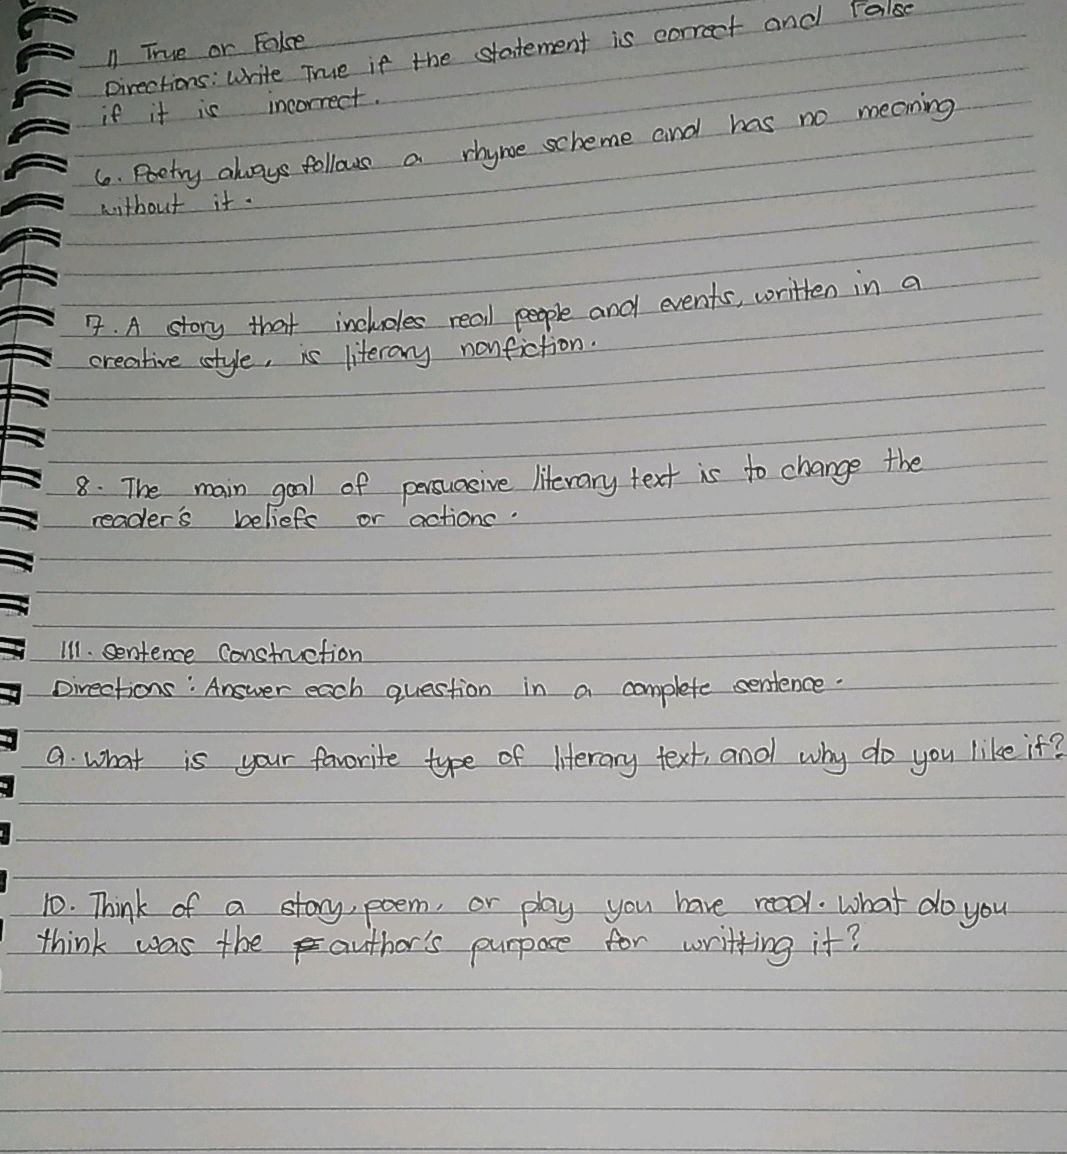 11 True or False
Directions: Write True if the statement is correct and False
if it is incorrect.
6. Poetry always follows a rhyme scheme and has no meaning
without it.
7. A story that includes real people and events, written in a
creative style, is literary nonfiction.
8. The main goal of persuasive literary text is to change the
reader's beliefs or actions.
111. Sentence Construction
Directions: Answer each question in a complete sentence.
9. What is your favorite type of literary text, and why do you like it?
10. Think of a story, poem, or play you have read. What do you
think was the author's purpose for writting it?